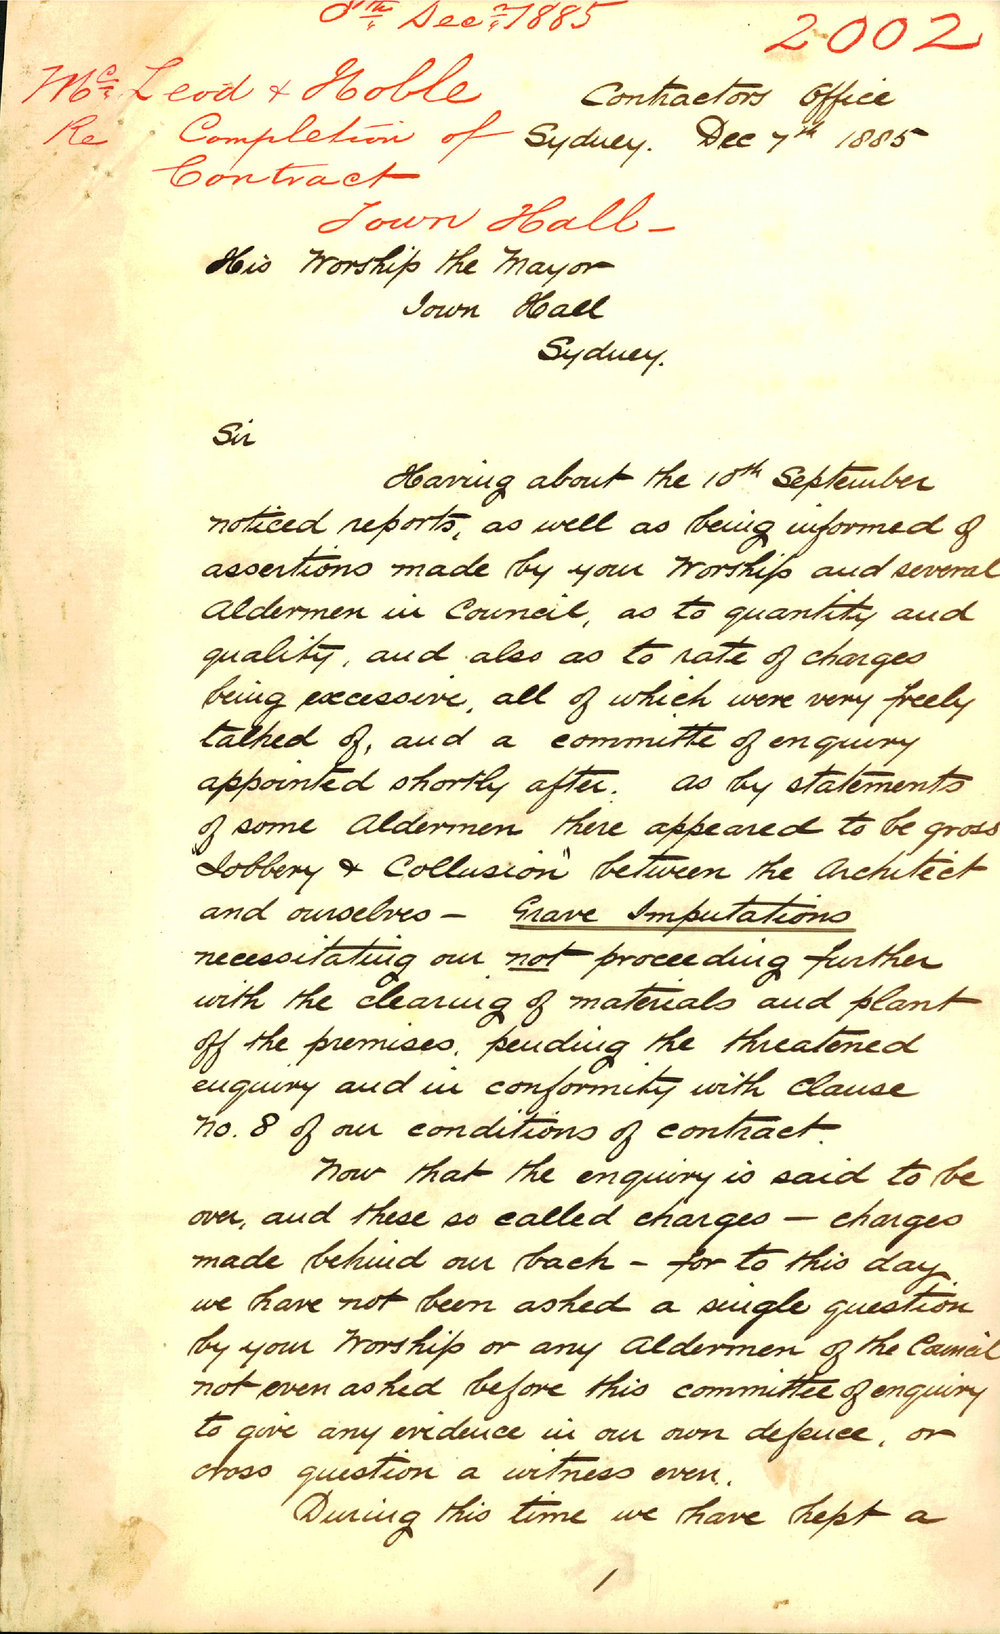 8th Decr 1885
2002
McLeod & Noble
Re Completion of
Contract
Town Hall –
Contractors Office
Sydney. Dec 7th 1885
His Worship the Mayor
Town Hall
Sydney.
Sir
Having about the 10th September
noticed reports, as well as being informed of
assertions made by your Worship and several
Aldermen in Council, as to quantity and
quality, and also as to rate of charges
being excessive, all of which were very freely
talked of, and a committe of enquiry
appointed shortly after. As by statements
of some Aldermen there appeared to be gross
"Jobbery & Collusion" between the Architect
and ourselves – Grave Imputations
necessitating our not proceeding further
with the clearing of materials and plant
off the premises, pending the threatened
enquiry and in conformity with clause
No. 8 of our conditions of contract.
Now that the enquiry is said to be
over, and these so called charges – charges
made behind our back – for to this day
we have not been asked a single question
by your Worship or any Aldermen of the Council
not even asked before this committee of enquiry
to give any evidence in our own defence, or
cross question a witness even.
During this time we have kept a
1